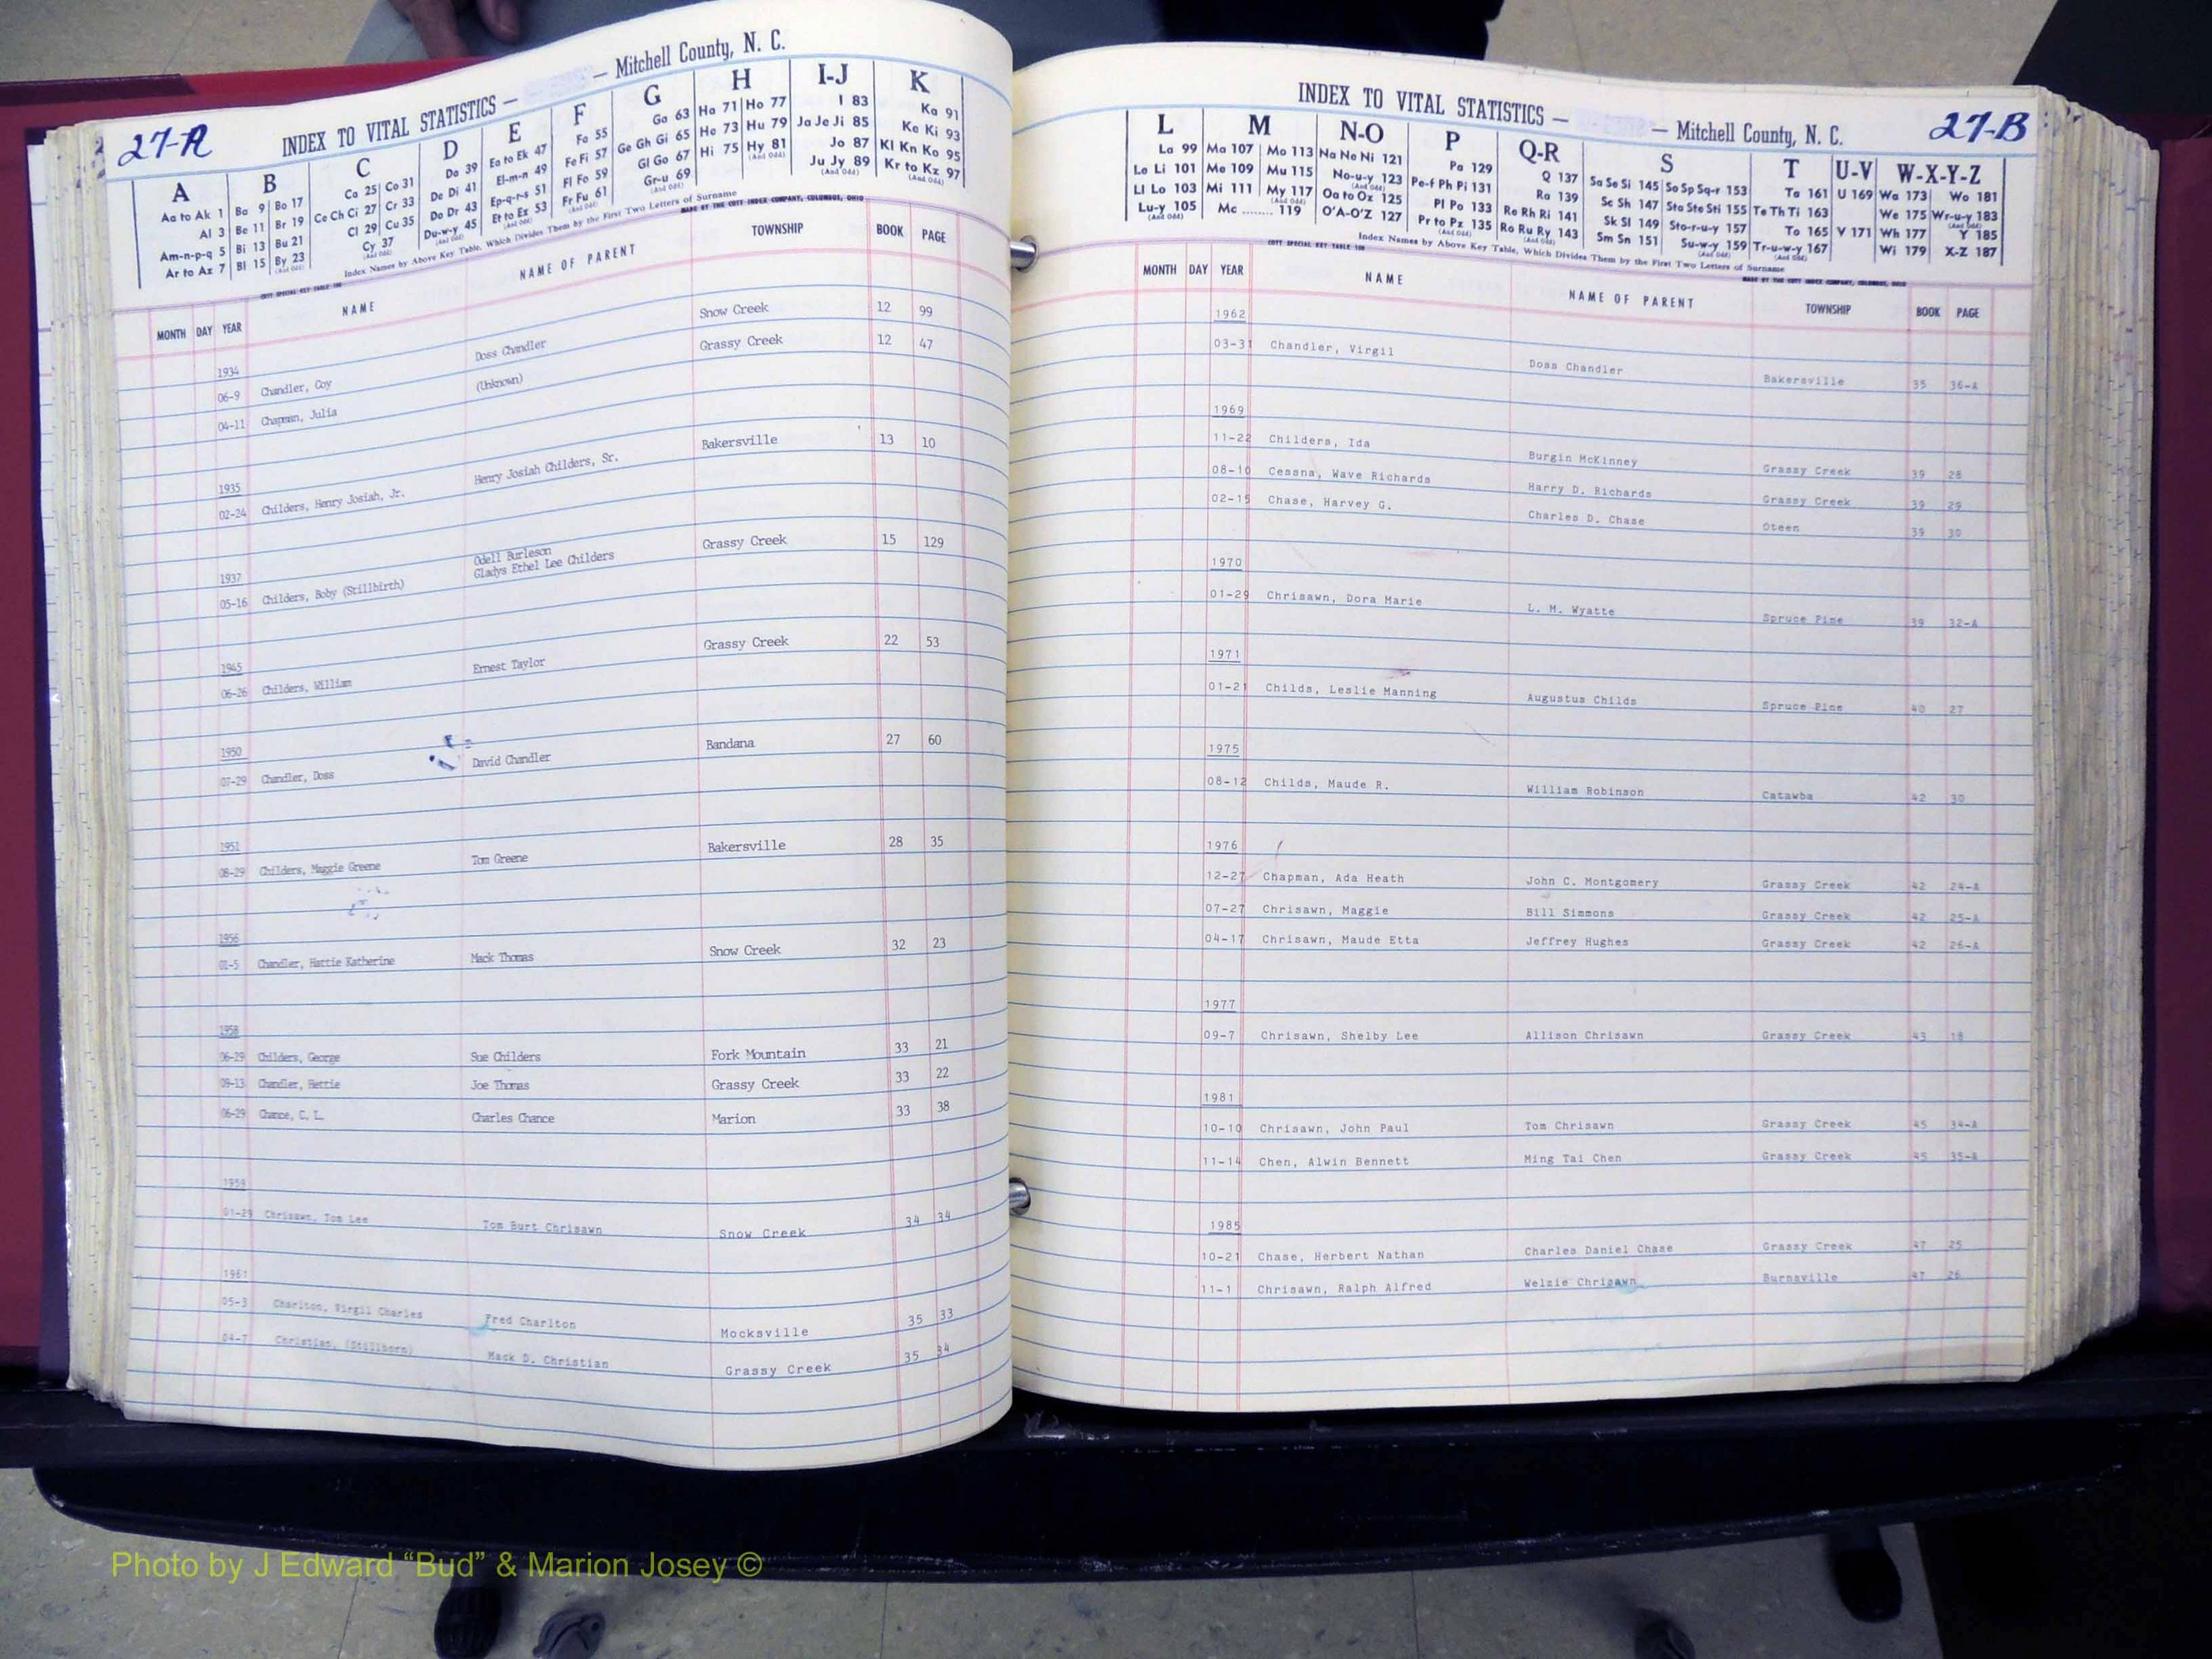 27-A INDEX TO VITAL STATISTICS — — Mitchell County, N. C.
A B C D E F G H I-J K
Aa to Ak 1 Ba 9 Bo 17 Ca 25 Co 31 Da 39 Ea to Ek 47 Fa 55 Ga 63 Ha 71 Ho 77 I 83 Ka 91
Al 3 Be 11 Br 19 Ce Ch Ci 27 Cr 33 De Di 41 El-m-n 49 Fe Fi 57 Ge Gh Gi 65 He 73 Hu 79 Ja Je Ji 85 Ke Ki 93
Am-n-p-q 5 Bi 13 Bu 21 Cl 29 Cu 35 Do Dr 43 Ep-q-r-s 51 Fl Fo 59 Gl Go 67 Hi 75 Hy 81 (And Odd) Jo 87 Kl Kn Ko 95
Ar to Az 7 Bl 15 By 23 (And Odd) Cy 37 (And Odd) Du-w-y 45 (And Odd) Et to Ez 53 (And Odd) Fr Fu 61 (And Odd) Gr-u 69 (And Odd) Ju Jy 89 (And Odd) Kr to Kz 97 (And Odd)
Index Names by Above Key Table, Which Divides Them by the First Two Letters of Surname
COTT SPECIAL KEY TABLE 100 MADE BY THE COTT INDEX COMPANY, COLUMBUS, OHIO
MONTH DAY YEAR NAME NAME OF PARENT TOWNSHIP BOOK PAGE
1934
06-9 Chandler, Coy Doss Chandler Snow Creek 12 99
04-11 Chapman, Julia (Unknown) Grassy Creek 12 47
1935
02-24 Childers, Henry Josiah, Jr. Henry Josiah Childers, Sr. Bakersville 13 10
1937
Odell Burleson
05-16 Childers, Boby (Stillbirth) Gladys Ethel Lee Childers Grassy Creek 15 129
1945
06-26 Childers, William Ernest Taylor Grassy Creek 22 53
1950
07-29 Chandler, Doss David Chandler Bandana 27 60
1951
08-29 Childers, Maggie Greene Tom Greene Bakersville 28 35
1956
Chandler, Hattie Katherine Mack Thomas Snow Creek 32 23
1958
06-29 Childers, George Sue Childers Fork Mountain 33 21
09-13 Chandler, Hettie Joe Thomas Grassy Creek 33 22
06-29 Chance, C. L. Charles Chance Marion 33 38
1959
01-29 Chrisawn, Tom Lee Tom Burt Chrisawn Snow Creek 34 34
1961
05-3 Charlton, Virgil Charles Fred Charlton Mocksville 35 33
04-7 Christian, (Stillborn) Mack D. Christian Grassy Creek 35 34
INDEX TO VITAL STATISTICS — — Mitchell County, N. C. 27-B
L M N-O P Q-R S T U-V W-X-Y-Z
La 99 Ma 107 Mo 113 Na Ne Ni 121 Pa 129 Q 137 Sa Se Si 145 So Sp Sq-r 153 Ta 161 U 169 Wa 173 Wo 181
Le Li 101 Me 109 Mu 115 No-u-y 123 (And Odd) Pe-f Ph Pi 131 Ra 139 Sc Sh 147 Sta Ste Sti 155 Te Th Ti 163 We 175 Wr-u-y 183 (And Odd)
Ll Lo 103 Mi 111 My 117 (And Odd) Oa to Oz 125 Pl Po 133 Re Rh Ri 141 Sk Sl 149 Sto-r-u-y 157 To 165 V 171 Wh 177 Y 185
Lu-y 105 (And Odd) Mc ........ 119 O'A-O'Z 127 Pr to Pz 135 (And Odd) Ro Ru Ry 143 (And Odd) Sm Sn 151 Su-w-y 159 (And Odd) Tr-u-w-y 167 (And Odd) Wi 179 X-Z 187
Index Names by Above Key Table, Which Divides Them by the First Two Letters of Surname
COTT SPECIAL KEY TABLE 100 MADE BY THE COTT INDEX COMPANY, COLUMBUS, OHIO
MONTH DAY YEAR NAME NAME OF PARENT TOWNSHIP BOOK PAGE
1962
03-31 Chandler, Virgil Doss Chandler Bakersville 35 36-A
1969
11-22 Childers, Ida Burgin McKinney Grassy Creek 39 28
08-10 Cessna, Wave Richards Harry D. Richards Grassy Creek 39 29
02-15 Chase, Harvey G. Charles D. Chase Oteen 39 30
1970
01-29 Chrisawn, Dora Marie L. M. Wyatte Spruce Pine 39 32-A
1971
01-21 Childs, Leslie Manning Augustus Childs Spruce Pine 40 27
1975
08-12 Childs, Maude R. William Robinson Catawba 42 30
1976
12-27 Chapman, Ada Heath John C. Montgomery Grassy Creek 42 24-A
07-27 Chrisawn, Maggie Bill Simmons Grassy Creek 42 25-A
04-17 Chrisawn, Maude Etta Jeffrey Hughes Grassy Creek 42 26-A
1977
09-7 Chrisawn, Shelby Lee Allison Chrisawn Grassy Creek 43 18
1981
10-10 Chrisawn, John Paul Tom Chrisawn Grassy Creek 45 34-A
11-14 Chen, Alwin Bennett Ming Tai Chen Grassy Creek 45 35-A
1985
10-21 Chase, Herbert Nathan Charles Daniel Chase Grassy Creek 47 25
11-1 Chrisawn, Ralph Alfred Welzie Chrisawn Burnsville 47 26
Photo by J Edward “Bud” & Marion Josey ©